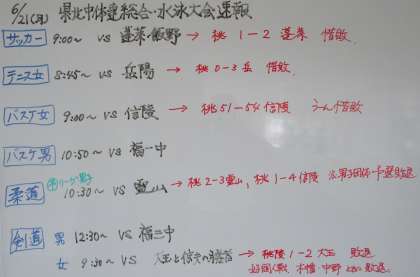 6/21(月) 県北中体連総合・水泳大会速報
サッカー 9:00〜 vs 蓬莱・飯野 → 桃 1-2 蓬莱 惜敗.
テニス女 8:45〜 vs 岳陽 → 桃 0-3 岳 惜敗.
バスケ女 9:00〜 vs 信陵 → 桃51-54信陵 う〜ん惜敗
バスケ男 10:50〜 vs 福一中
柔道 男 10:30〜 vs 霊山 → 桃2-3霊山, 桃1-4信陵
剣道 男 12:30〜 vs 福三中
女 9:30〜 vs 大玉と信夫の勝者 → 桃陵 1-2 大玉 敗退